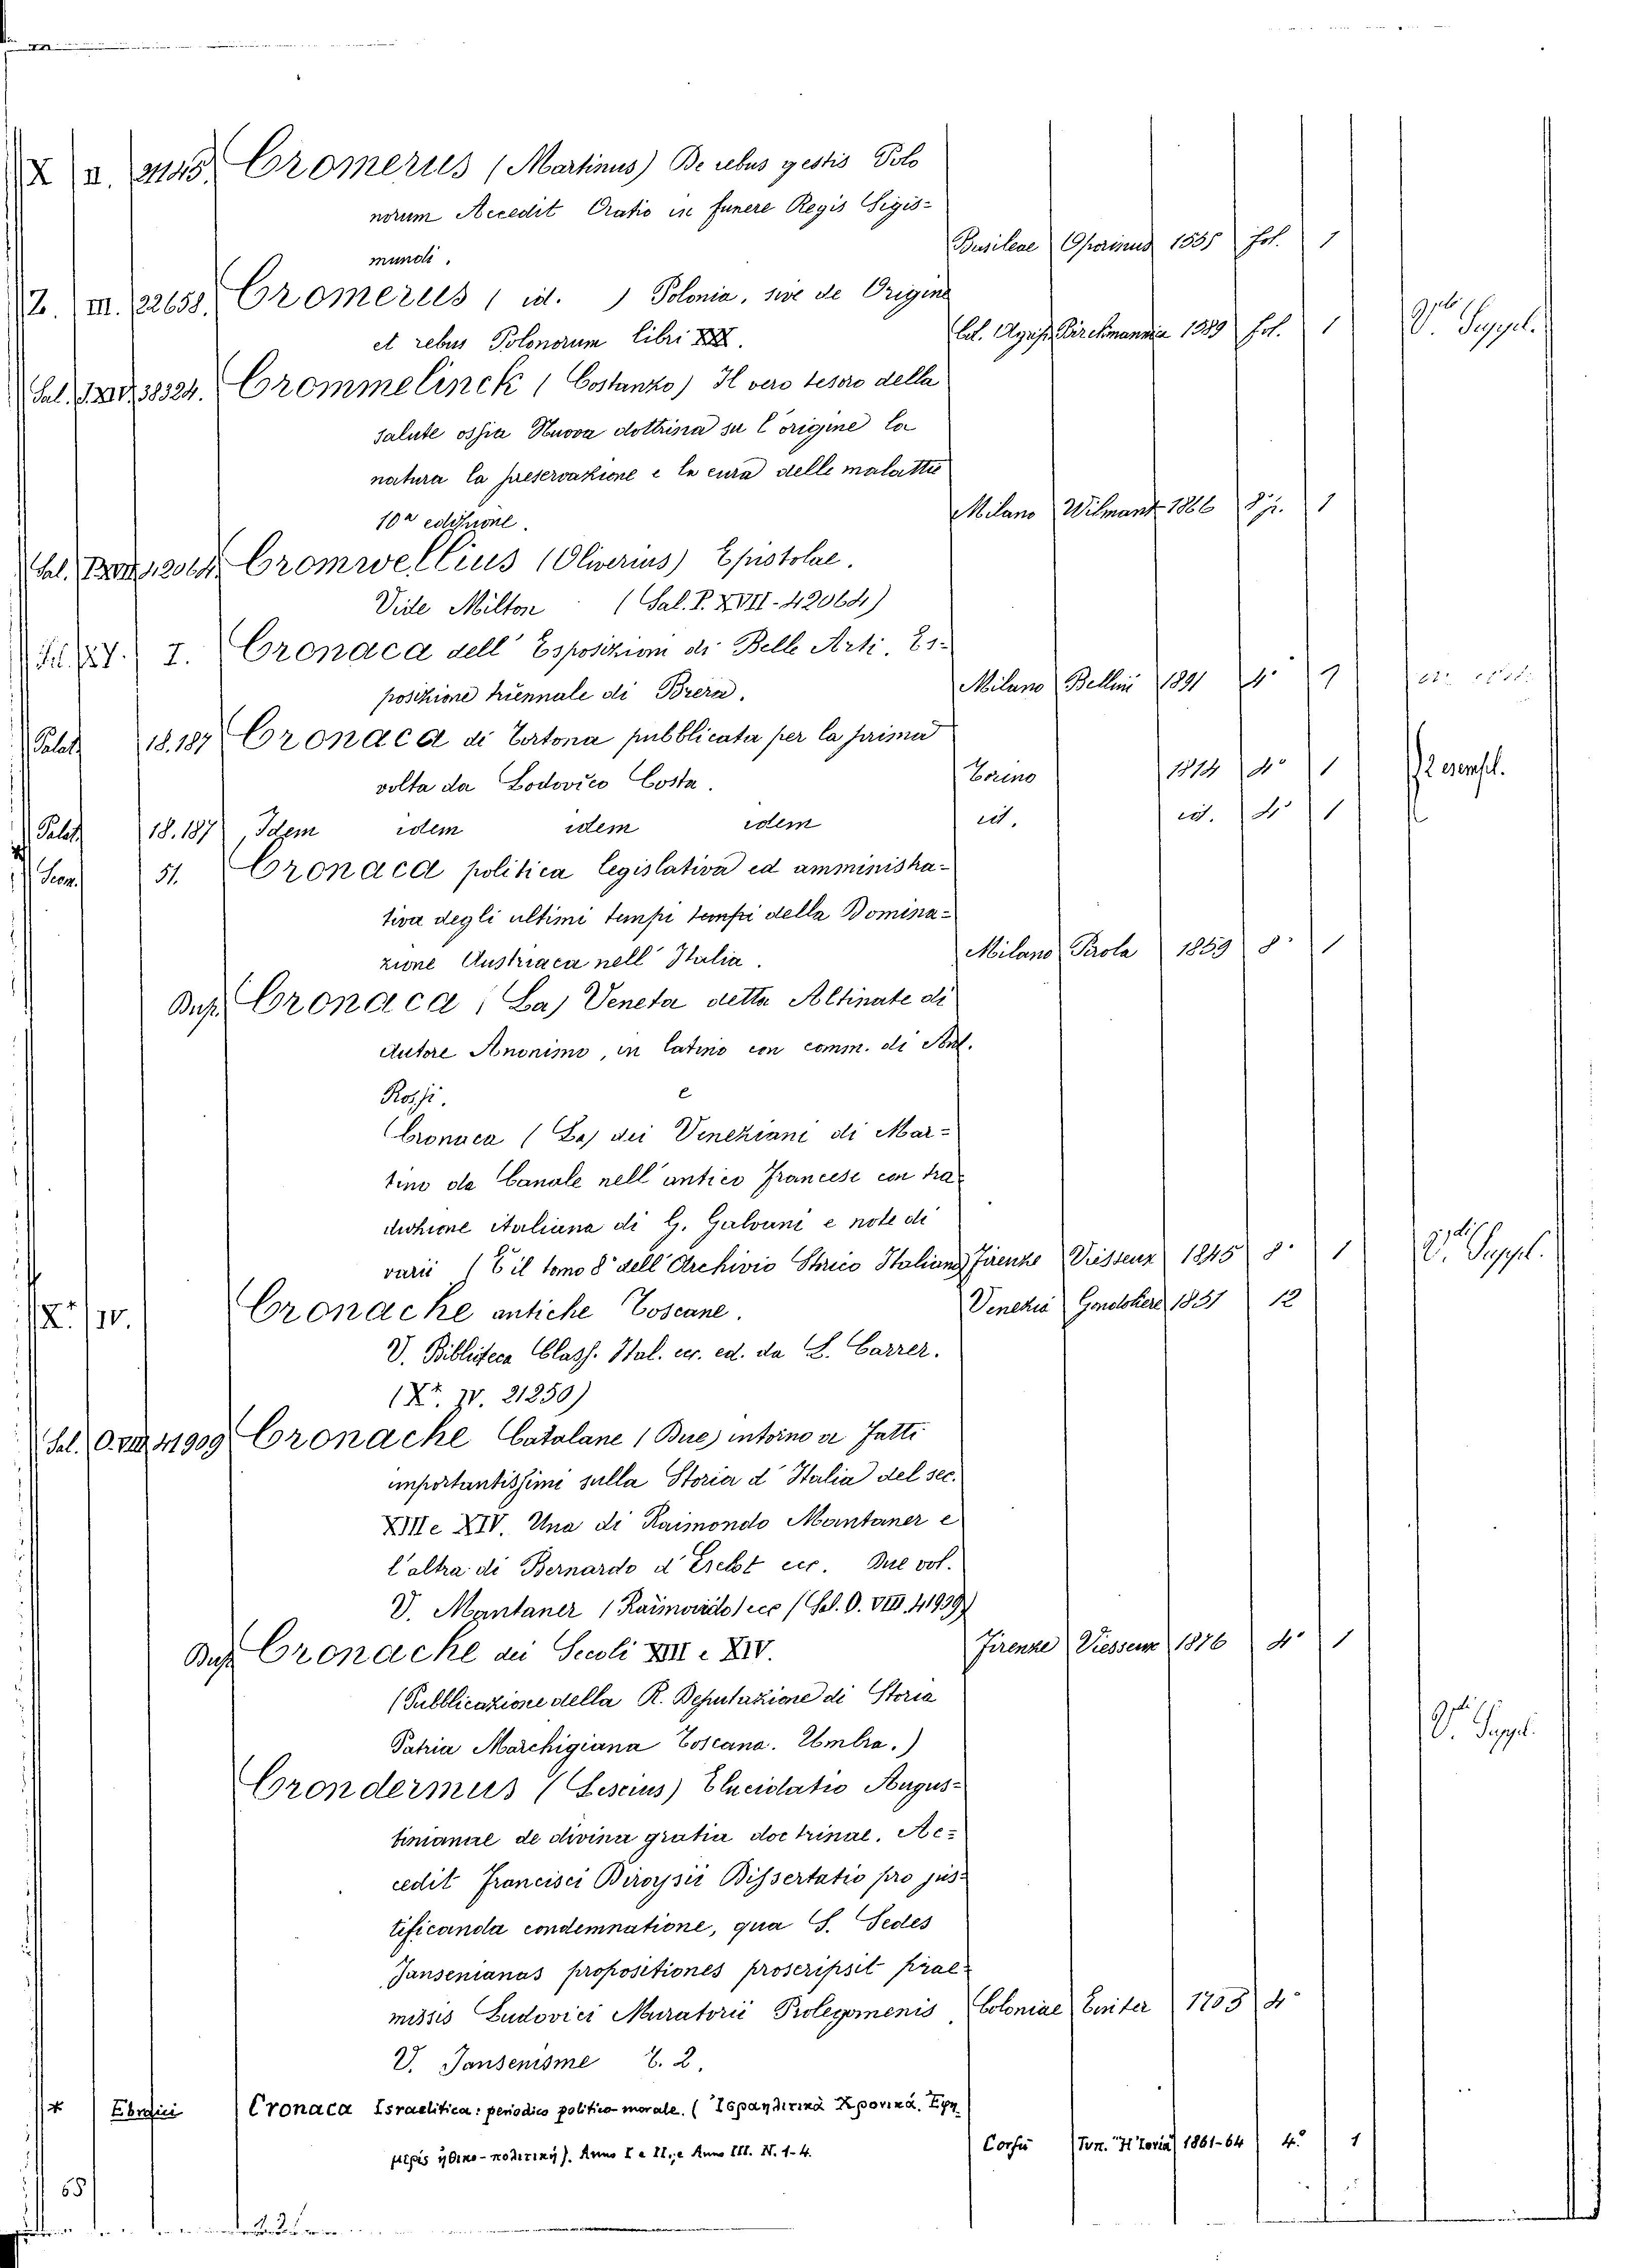 X II. 21145. Cromerus (Martinus) De rebus gestis Polo
norum Accedit Oratio in funere Regis Sigis=
mundi. Basileae Oporinus 1555 fol. 1
Z. III. 22658. Cromerus ( id. ) Polonia, sive de Origine
et rebus Polonorum libri XXX. Col. Agrip. Birckmannia 1589 fol. 1 V. Suppl.
Sal. 38324. Crommelinck (Costanzo) Il vero tesoro della
salute ossia Nuova dottrina su l'origine la
natura la preservazione e la cura delle malattie
10a edizione. Milano Wilmant 1866 8 p. 1
Sal. Cromwellius (Oliverius) Epistolae.
Vide Milton (Sal. P. XVII. 42064)
I. Cronaca dell'Esposizioni di Belle Arti. Es=
posizione triennale di Brera. Milano Bellini 1891 4°
Palat. 18.187 Cronaca di Tortona pubblicata per la prima
volta da Lodovico Costa. Torino 1814 4° 1 2 esempl.
Palat. 18.187, Idem idem idem idem id. id. 4° 1
51. Cronaca politica legislativa ed amministra=
tiva degli ultimi tempi tempi della Domina=
zione Austriaca nell'Italia. Milano Pirola 1859 8° 1
Cronaca (La) Veneta detta Altinate di
Autore Anonimo, in latino con comm. di Ant.
Rossi. e
Cronaca (La) dei Veneziani di Mar=
tino da Canale nell'antico Francese con tra
duzione italiana di G. Galvani e note di
varii (È il tomo 8° dell'Archivio Storico Italiano) Firenze Viesseux 1845 8° 1 V. Suppl.
X.* IV. Cronache antiche Toscane. Venezia Gondoliere 1831 12
V. Biblioteca Class. Ital. ecc. ed. da L. Carrer.
(X*. IV. 21250)
Sal. O. VIII 41909 Cronache Catalane (Due) intorno ai Fatti
importantissimi sulla Storia d'Italia del sec.
XIII e XIV. Una di Raimondo Montaner e
l'altra di Bernardo d'Esclot ecc. Due vol.
V. Montaner (Raimondo) ecc (Sal. O. VIII. 41909)
Cronache dei Secoli XIII e XIV. Firenze Viesseux 1876 4° 1
(Pubblicazione della R. Deputazione di Storia
Patria Marchigiana Toscana. Umbra.) V. Suppl.
Crondermus (Liscius) Elucidatio Augus=
tinianae de divina gratia doctrinae. Ac=
cedit Francisci Biroysii Dissertatio pro jus=
tificanda condemnatione, qua S. Sedes
Jansenianas propositiones proscripsit prae=
missis Ludovici Muratorii Prolegomenis, Coloniae 1705 4°
V. Jansenisme T. 2.
* Ebraici Cronaca Israelitica: periodico politico-morale. (Ἰσραηλιτικὰ Χρονικά. Ἐφη
μερὶς ἠθικο-πολιτική). Anno I e II, e Anno III. N. 1-4. Corfù Ton. "Ἡ Ἰονία" 1861-64 4.° 1
65